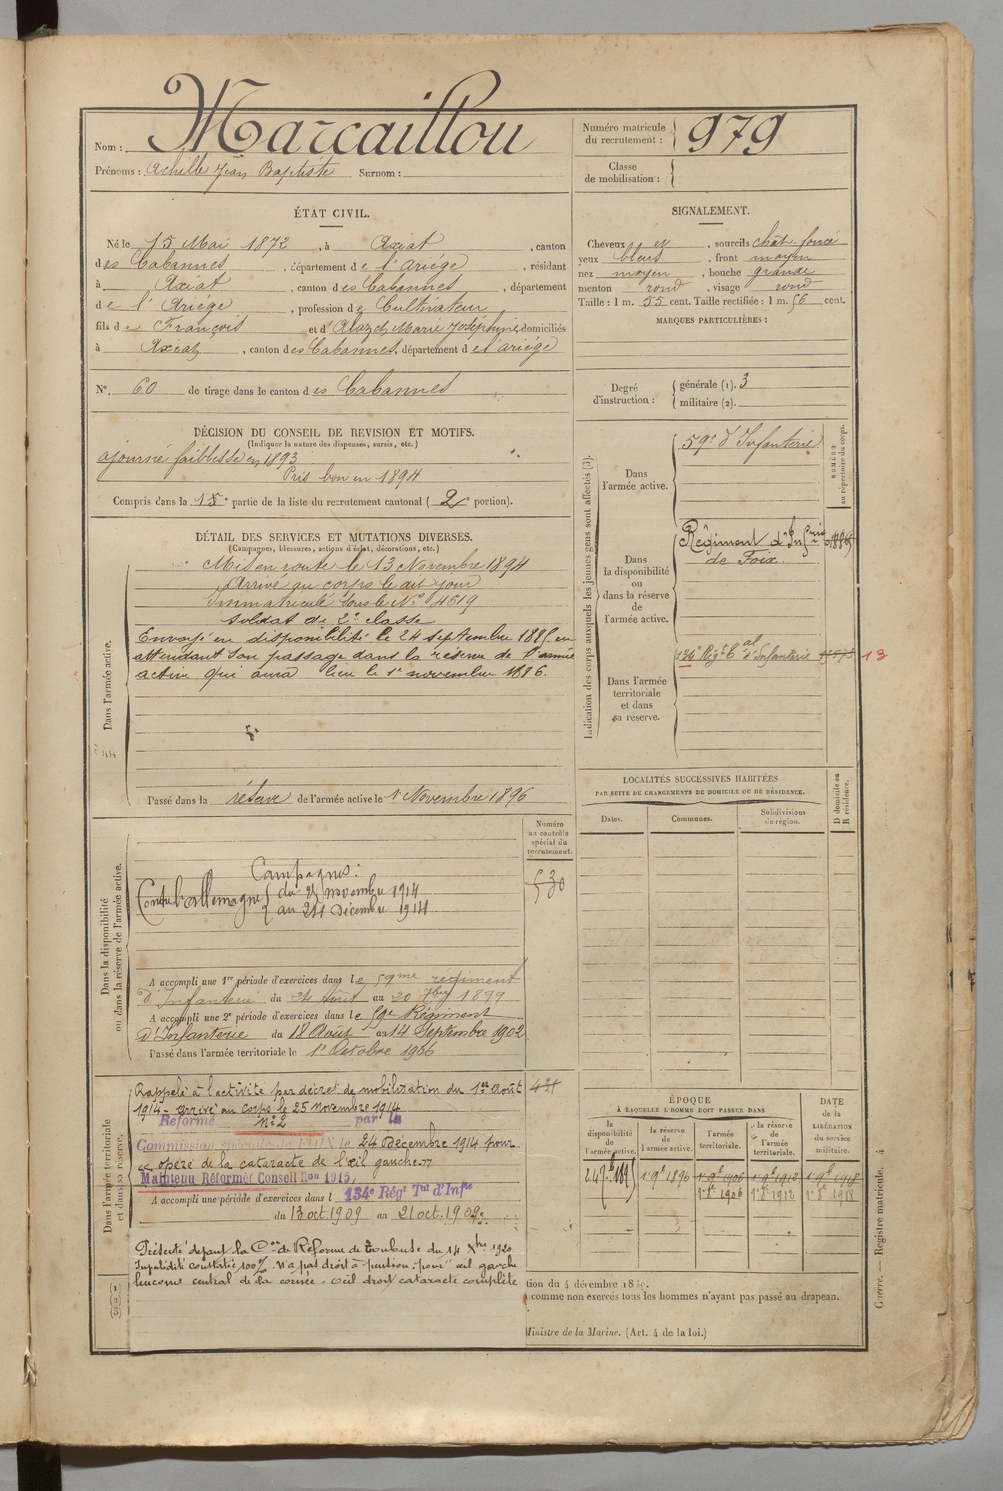 Nom : Marcaillou
Prénoms : Achille Jean Baptiste Surnom :
Numéro matricule du recrutement : 979
Classe de mobilisation :
ÉTAT CIVIL.
Né le 15 Mai 1872, à Axiat, canton
des Cabannes, département de l'Ariège, résidant
à Axiat, canton des Cabannes, département
de l'Ariège, profession de Cultivateur
fils de François et d'Alazet Marie Joséphine, domiciliés
à Axiat, canton des Cabannes, département de l'ariège
N° 60 de tirage dans le canton des Cabannes
SIGNALEMENT.
Cheveux et, sourcils chât. foncé
yeux bleus, front moyen
nez moyen, bouche grande
menton rond, visage rond
Taille : 1 m. 55 cent. Taille rectifiée : 1 m. 56 cent.
MARQUES PARTICULIÈRES :
Degré d'instruction : générale (1). 3
militaire (2).
DÉCISION DU CONSEIL DE REVISION ET MOTIFS.
(Indiquer la nature des dispenses, sursis, etc.)
ajourné faiblesse en 1893
Pris bon en 1894
Compris dans la 1e partie de la liste du recrutement cantonal (2e portion).
DÉTAIL DES SERVICES ET MUTATIONS DIVERSES.
(Campagnes, blessures, actions d'éclat, décorations, etc.)
Dans l'armée active.
Mis en route le 13 Novembre 1894
Arrivé au corps le dit jour
Immatriculé sous le N° 4619
soldat de 2e classe
Envoyé en disponibilité le 24 septembre 1895 en
attendant son passage dans la réserve de l'armée
active qui aura lieu le 1er novembre 1896.
Passé dans la réserve de l'armée active le 1er Novembre 1896
Indication des corps auxquels les jeunes gens sont affectés (3).
NUMÉRO au répertoire du corps.
Dans l'armée active.
59e d'Infanterie
Dans la disponibilité ou dans la réserve de l'armée active.
Régiment d'Infrie
de Foix.
Dans l'armée territoriale et dans sa réserve.
134e Régt Tal d'Infanterie
13
LOCALITÉS SUCCESSIVES HABITÉES
PAR SUITE DE CHANGEMENTS DE DOMICILE OU DE RÉSIDENCE.
Dates. Communes. Subdivisions de région. D domicile ou R résidence.
Numéro au contrôle spécial du recrutement.
530
Dans la disponibilité ou dans la réserve de l'armée active.
Campagnes :
Contre l'allemagne du 25 novembre 1914
au 24 Décembre 1914
A accompli une 1re période d'exercices dans le 59me régiment
d'Infanterie du 24 Août au 20 7bre 1899
A accompli une 2e période d'exercices dans le 59e Régiment
d'Infanterie du 18 Août au 14 Septembre 1902
Passé dans l'armée territoriale le 1er Octobre 1906
Dans l'armée territoriale et dans sa réserve.
Rappelé à l'activité par décret de mobilisation du 1er Août
1914 - arrivé au Corps le 25 novembre 1914
Réformé n° 2 par la
Commission spéciale de FOIX le 24 Décembre 1914 pour
opéré de la cataracte de l'œil gauche
Maintenu Réformé Conseil Ron 1915,
A accompli une période d'exercices dans l 134e Régt Tal d'Infie
du 13 oct. 1909 au 21 oct. 1909
Présenté devant la Con de Réforme de Toulouse du 14 Xbre 1920
Invalidité constatée 100% N'a pas droit à pension - pour œil gauche
leucome central de la cornée. Oeil droit cataracte complète
ÉPOQUE
À LAQUELLE L'HOMME DOIT PASSER DANS
la disponibilité de l'armée active.
la réserve de l'armée active.
l'armée territoriale.
la réserve de l'armée territoriale.
DATE de la LIBÉRATION du service militaire.
24 7bre 1895 1er 9bre 1896 1er 9bre 1906 1er 9bre 1912 1er 9bre 1918
1er 8bre 1906 1er 8bre 1912 1er 8bre 1918
tion du 4 décembre 18
comme non exercés tous les hommes n'ayant pas passé au drapeau.
Ministre de la Marine. (Art. 4 de la loi.)
1 2 3
Guerre. — Registre matricule. 4